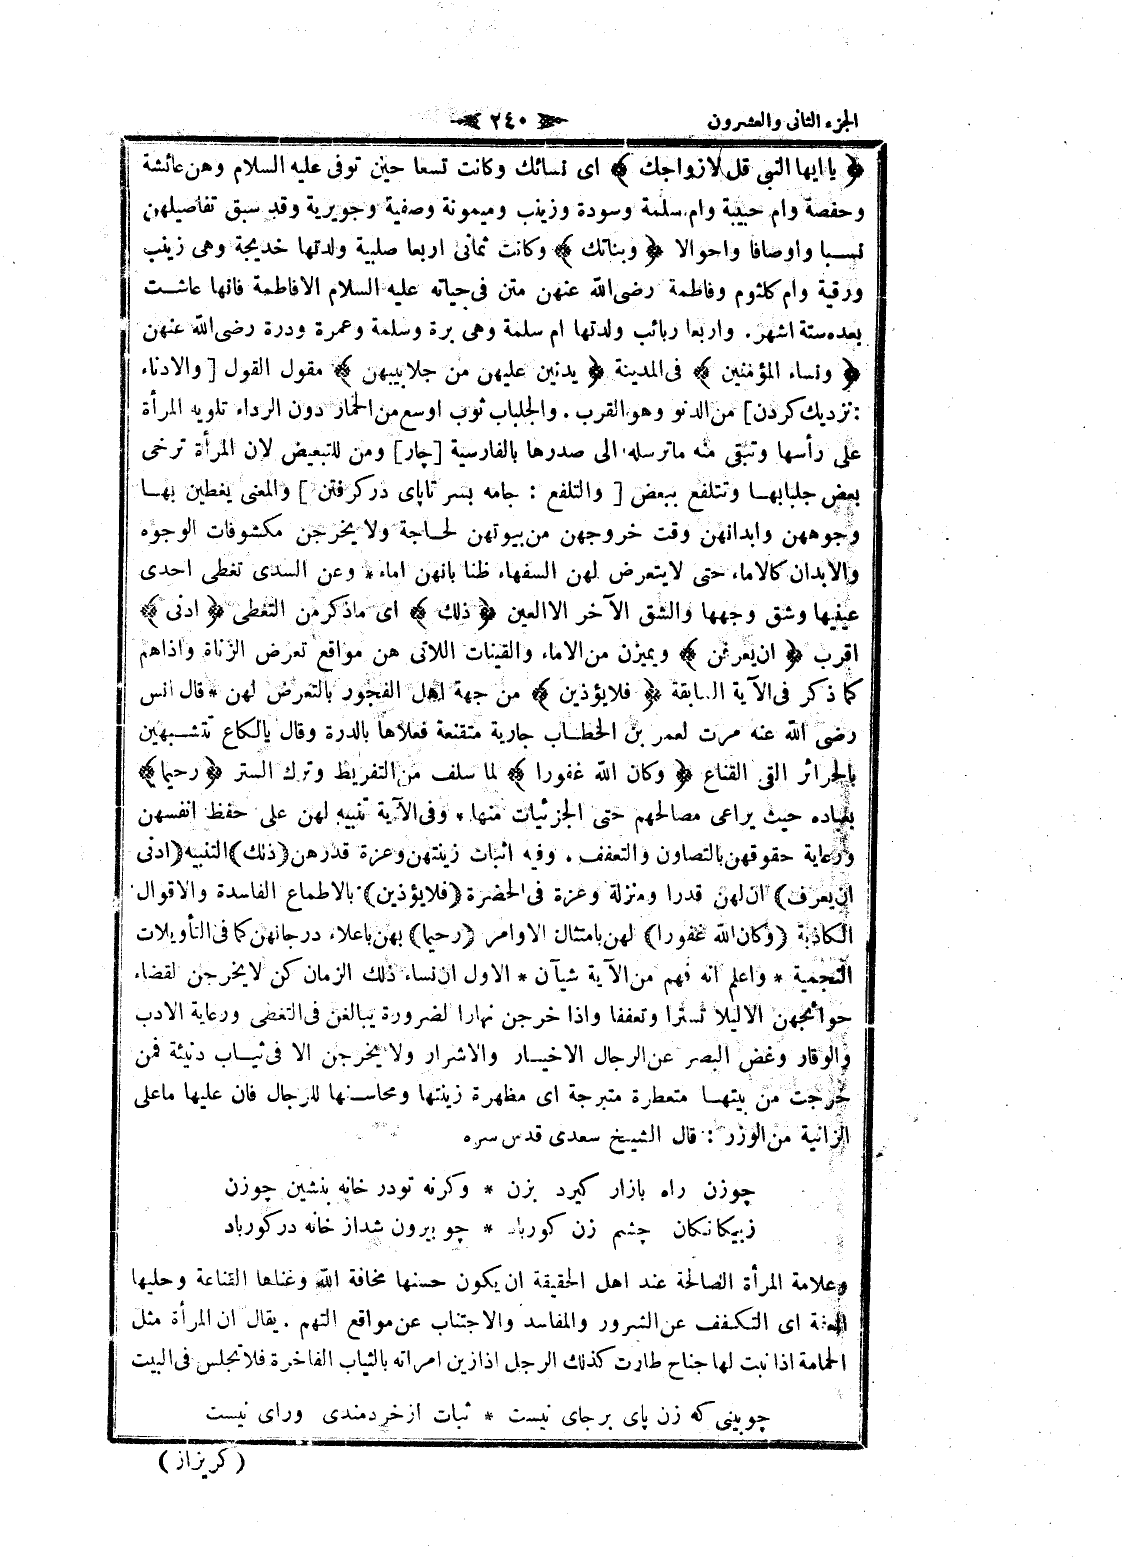 الجزء الثانى والعشرون
٢٤٠
﴿ يا ايها النبى قل لازواجك ﴾ اى نسائك وكانت تسعا حين توفى عليه السلام وهن عائشة
وحفصة وام حبيبة وام سلمة وسودة وزينب وميمونة وصفية وجويرية وقد سبق تفاصيلهن
نسبا واوصافا واحوالا ﴿ وبناتك ﴾ وكانت ثمانى اربعا صلبية ولدتها خديجة وهى زينب
ورقية وام كلثوم وفاطمة رضى الله عنهن متن فى حياته عليه السلام الا فاطمة فانها عاشت
بعده ستة اشهر . واربعا ربائب ولدتها ام سلمة وهى برة وسلمة وعمرة ودرة رضى الله عنهن
﴿ ونساء المؤمنين ﴾ فى المدينة ﴿ يدنين عليهن من جلابيبهن ﴾ مقول القول [ والادناء
: نزديك كردن ] من الدنو وهو القرب . والجلباب ثوب اوسع من الخمار دون الرداء تلويه المرأة
على رأسها وتبقى منه ما ترسله الى صدرها بالفارسية [ چار ] ومن للتبعيض لان المرأة ترخى
بعض جلبابها وتتلفع ببعض [ والتلفع : جامه بسر تاپاى دركرفتن ] والمعنى يغطين بها
وجوههن وابدانهن وقت خروجهن من بيوتهن لحاجة ولا يخرجن مكشوفات الوجوه
والابدان كالاماء حتى لا يتعرض لهن السفهاء ظنا بانهن اماء * وعن السدى تغطى احدى
عينيها وشق وجهها والشق الآخر الا العين ﴿ ذلك ﴾ اى ماذكر من التغطى ﴿ ادنى ﴾
اقرب ﴿ ان يعرفن ﴾ ويميزن من الاماء والقينات اللاتى هن مواقع تعرض الزناة واذاهم
كما ذكر فى الآية السابقة ﴿ فلا يؤذين ﴾ من جهة اهل الفجور بالتعرض لهن * قال انس
رضى الله عنه مرت لعمر بن الخطاب جارية متقنعة فعلاها بالدرة وقال يا لكاع تتشبهين
بالحرائر القى القناع ﴿ وكان الله غفورا ﴾ لما سلف من التفريط وترك الستر ﴿ رحيما ﴾
بعباده حيث يراعى مصالحهم حتى الجزئيات منها * وفى الآية تنبيه لهن على حفظ انفسهن
ورعاية حقوقهن بالتصاون والتعفف . وفيه اثبات زينتهن وعزة قدرهن (ذلك) التنبيه (ادنى
ان يعرف) ان لهن قدرا ومنزلة وعزة فى الحضرة (فلا يؤذين) بالاطماع الفاسدة والاقوال
الكاذبة (وكان الله غفورا) لهن بامتثال الاوامر (رحيما) بهن باعلاء درجاتهن كما فى التأويلات
النجمية * واعلم انه فهم من الآية شيآن * الاول ان نساء ذلك الزمان كن لا يخرجن لقضاء
حوائجهن الا ليلا تسترا وتعففا واذا خرجن نهارا لضرورة يبالغن فى التغطى ورعاية الادب
والوقار وغض البصر عن الرجال الاخيار والاشرار ولا يخرجن الا فى ثياب دنيئة فمن
خرجت من بيتها متعطرة متبرجة اى مظهرة زينتها ومحاسنها للرجال فان عليها ما على
الزانية من الوزر : قال الشيخ سعدى قدس سره
چوزن راه بازار كيرد بزن * وكرنه تو در خانه بنشين چوزن
زبيكانكان چشم زن كور باد * چو بيرون شد از خانه در كور باد
وعلامة المرأة الصالحة عند اهل الحقيقة ان يكون حسنها مخافة الله وغناها القناعة وحليها
العفة اى التكفف عن الشرور والمفاسد والاجتناب عن مواقع التهم . يقال ان المرأة مثل
الحمامة اذا نبت لها جناح طارت كذلك الرجل اذا زين امرأته بالثياب الفاخرة فلا تجلس فى البيت
چو بينى كه زن پاى برجاى نيست * ثبات از خردمندى وراى نيست
( كريز از )